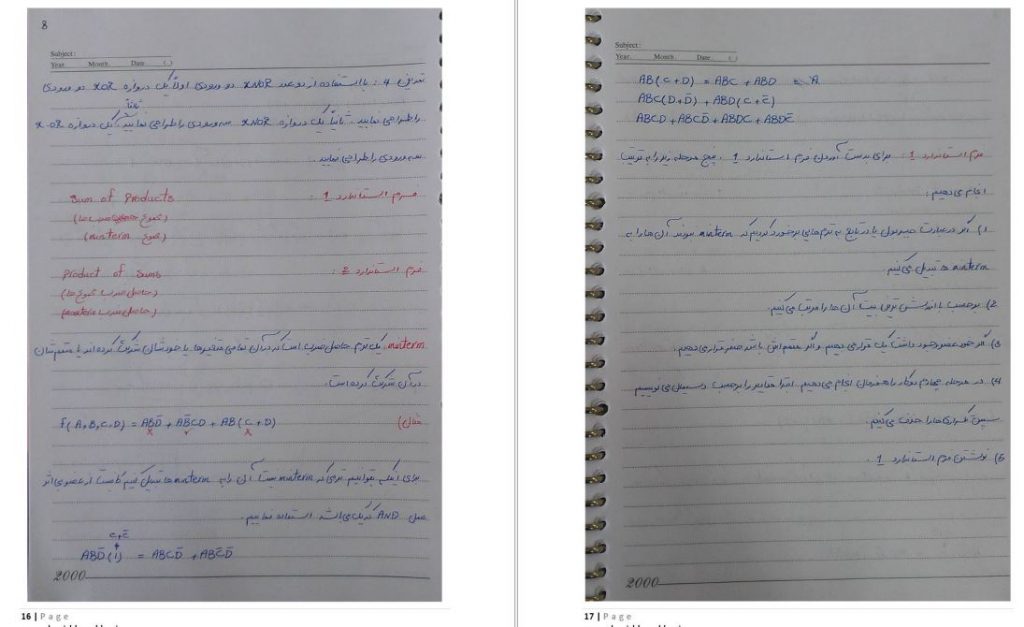 8
Subject:
Year. Month. Date. ( )
تمرین 4 : با استفاده از دو عدد XNOR دو ورودی اولاً یک دروازه XOR دو ورودی
ثانیاً
را طراحی نمایید. ثانیاً یک دروازه XNOR سه ورودی را طراحی نمایید. یک دروازه XOR
سه ورودی را طراحی نمایید.
فرم استاندارد 1 : Sum of Products
(مجموع حاصلضرب ها)
(مجموع minterm)
فرم استاندارد 2 : Product of Sums
(حاصل ضرب مجموع ها)
(حاصل ضرب maxterm)
minterm: یک ترم حاصل ضرب است که در آن تمامی متغیرها یا خودشان شرکت کرده اند یا متمم شان
در آن شرکت کرده است.
مثال) f(A,B,C,D) = ABD̅ + AB̅CD + AB(C+D)
x ✓ x
برای اینکه بتوانیم ترمی که minterm نیست آن را به minterm ها تبدیل کنیم کافیست از عضو بی اثر
عمل AND که یک می باشد. استفاده نماییم.
C+C̅
ABD̅(1) = ABCD̅ + ABC̅D̅
2000
16 | Page
Subject:
Year. Month. Date. ( )
AB(C+D) = ABC + ABD
ABC(D+D̅) + ABD(C+C̅)
ABCD + ABCD̅ + ABDC + ABDC̅
فرم استاندارد 1 : برای بدست آوردن فرم استاندارد 1 ، پنج مرحله زیر را به ترتیب
انجام می دهیم :
1) اگر در عبارت جبر بول یا در تابع به ترم هایی برخورد کردیم که minterm نبودند آن ها را به
minterm ها تبدیل می کنیم.
2) برحسب با ارزش ترین بیت آن ها را مرتب می کنیم.
3) اگر خود عضو وجود داشت یک قرار می دهیم و اگر متمم اش باشد صفر قرار می دهیم.
4) در مرحله چهارم دو کار را همزمان انجام می دهیم. ابتدا مقادیر را برحسب دسیمال می نویسیم
سپس تکراری ها را حذف می کنیم.
5) نوشتن فرم استاندارد 1 .
2000
17 | Page